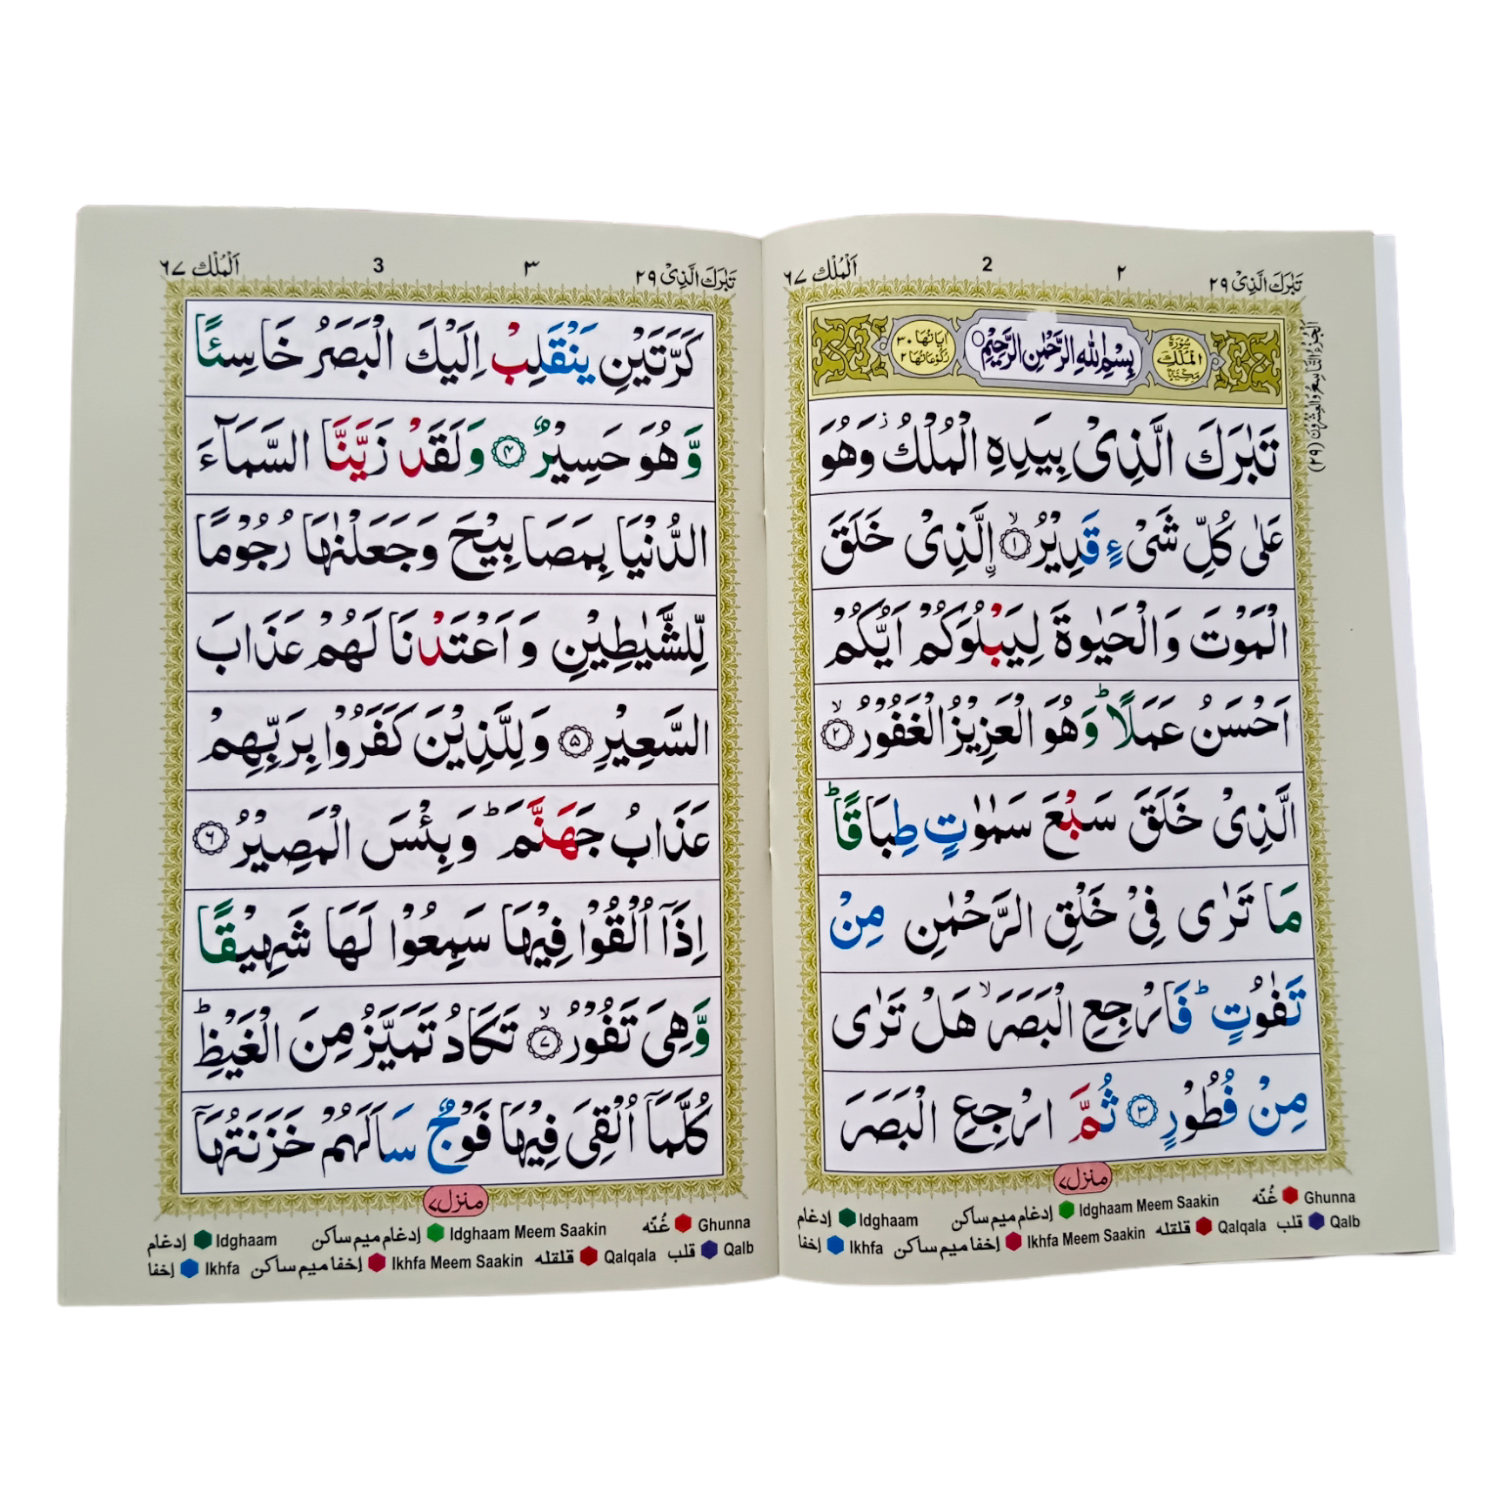 تَبٰرَكَ الَّذِىْ ٢٩
٢
2
اَلْمُلْك ٦٧
سُوْرَةُ الْمُلْكِ مَكِّيَّةٌ
بِسْمِ اللهِ الرَّحْمٰنِ الرَّحِيْمِ
اٰيَاتُهَا ٣٠ رُكُوْعَاتُهَا ٢
تَبٰرَكَ الَّذِىْ بِيَدِهِ الْمُلْكُ ز وَهُوَ
عَلٰى كُلِّ شَىْءٍ قَدِيْرُ ۙ‏﴿١﴾ ۨالَّذِىْ خَلَقَ
الْمَوْتَ وَالْحَيٰوةَ لِيَبْلُوَكُمْ اَيُّكُمْ
اَحْسَنُ عَمَلًا ؕ وَهُوَ الْعَزِيْزُ الْغَفُوْرُ ۙ‏﴿٢﴾
الَّذِىْ خَلَقَ سَبْعَ سَمٰوٰتٍ طِبَاقًا ؕ
مَا تَرٰى فِىْ خَلْقِ الرَّحْمٰنِ مِنْ
تَفٰوُتٍ ؕ فَارْجِعِ الْبَصَرَ ۙ هَلْ تَرٰى
مِنْ فُطُوْرٍ ﴿٣﴾ ثُمَّ ارْجِعِ الْبَصَرَ
منزل ٧
الْجُزْءُ التَّاسِعُ وَالْعِشْرُوْنَ (٢٩)
Ghunna غُنّه Idghaam Meem Saakin إدغام ميم ساكن Idghaam إدغام
Qalb قلب Qalqala قلقله Ikhfa Meem Saakin إخفا ميم ساكن Ikhfa إخفا
تَبٰرَكَ الَّذِىْ ٢٩
٣
3
اَلْمُلْك ٦٧
كَرَّتَيْنِ يَنْقَلِبْ اِلَيْكَ الْبَصَرُ خَاسِئًا
وَّهُوَ حَسِيْرٌ ﴿٤﴾ وَلَقَدْ زَيَّنَّا السَّمَآءَ
الدُّنْيَا بِمَصَابِيْحَ وَجَعَلْنٰهَا رُجُوْمًا
لِّلشَّيٰطِيْنِ وَاَعْتَدْنَا لَهُمْ عَذَابَ
السَّعِيْرِ ﴿٥﴾ وَلِلَّذِيْنَ كَفَرُوْا بِرَبِّهِمْ
عَذَابُ جَهَنَّمَ ؕ وَبِئْسَ الْمَصِيْرُ ﴿٦﴾
اِذَآ اُلْقُوْا فِيْهَا سَمِعُوْا لَهَا شَهِيْقًا
وَّهِىَ تَفُوْرُ ۙ‏﴿٧﴾ تَكَادُ تَمَيَّزُ مِنَ الْغَيْظِ ؕ
كُلَّمَآ اُلْقِىَ فِيْهَا فَوْجٌ سَاَلَهُمْ خَزَنَتُهَآ
منزل ٧
Ghunna غُنّه Idghaam Meem Saakin إدغام ميم ساكن Idghaam إدغام
Qalb قلب Qalqala قلقله Ikhfa Meem Saakin إخفا ميم ساكن Ikhfa إخفا